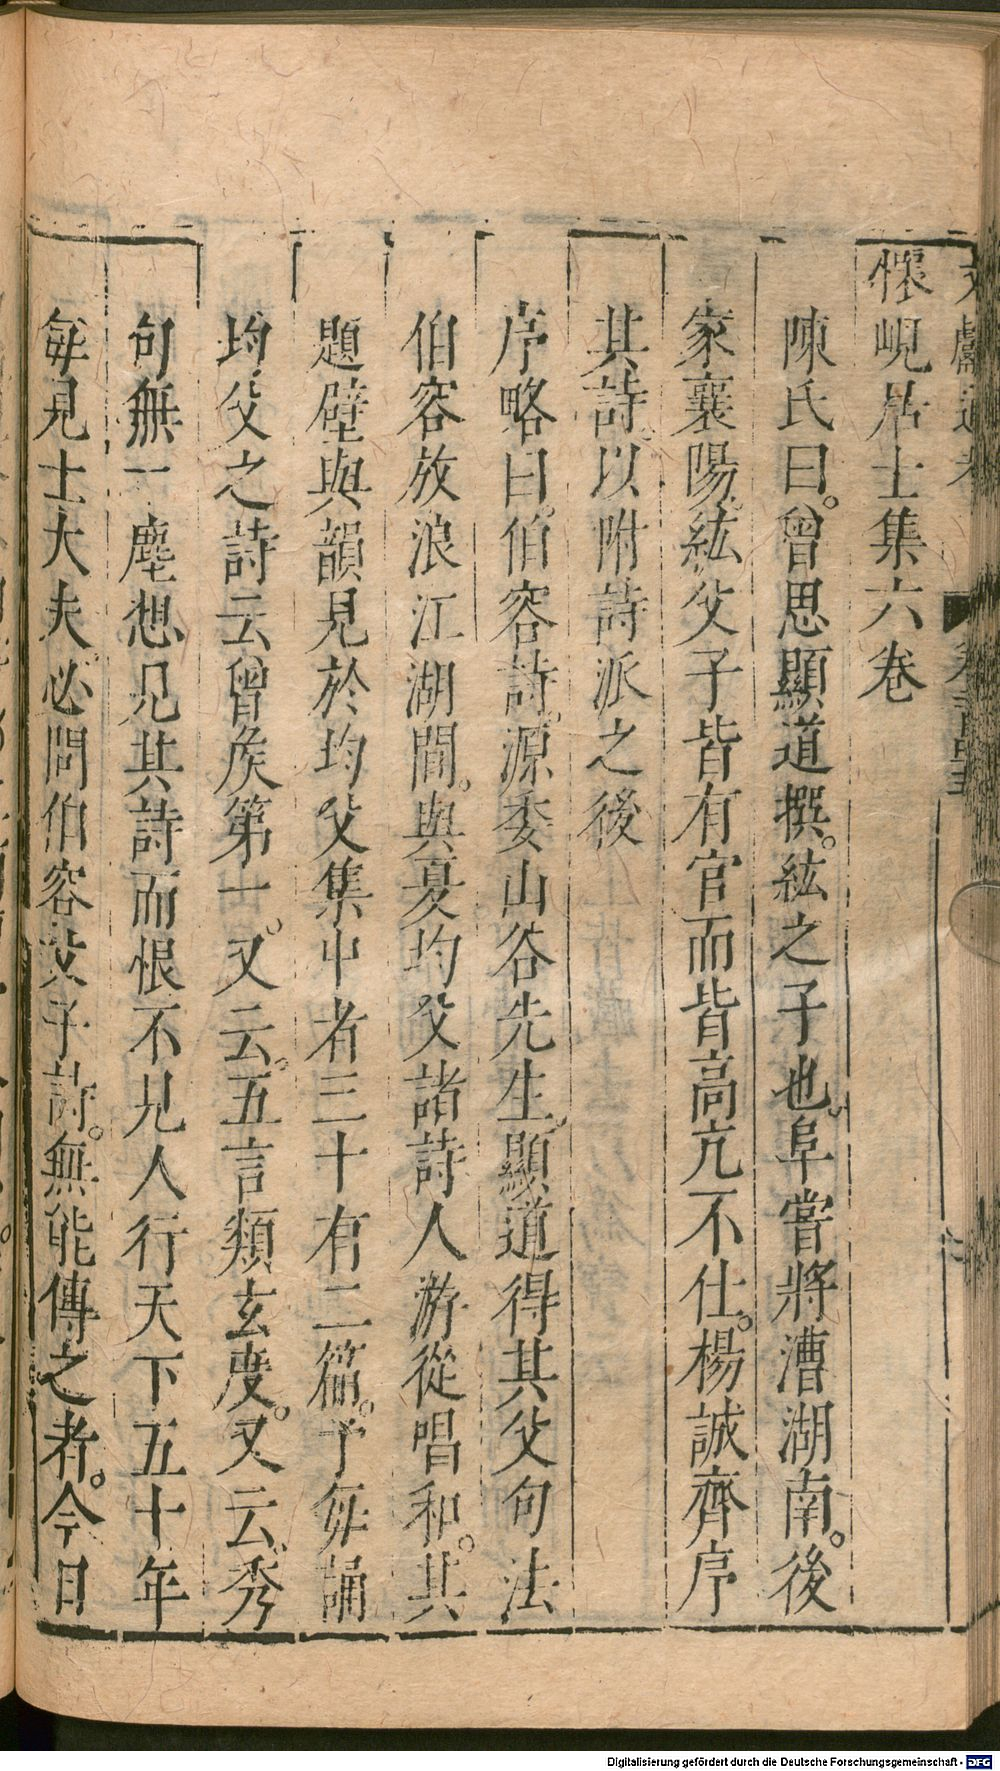 文獻通考
懷峴居士集六卷
陳氏曰。曾思顯道撰。紘之子也。阜嘗將漕湖南。後
家襄陽。紘父子皆有官而皆高亢不仕。楊誠齊序
其詩。以附詩派之後
序略曰。伯容詩。源委山谷先生。顯道得其父句法
伯容放浪江湖間。與夏均父諸詩人游從唱和。其
題壁與韻見於均父集中者三十有二篇。予每誦
均父之詩云曾矦第一。又云。五言類玄度。又云。秀
句無一塵想見其詩而恨不見人行天下五十年
每見士大夫。必問伯容父子詩。無能傳之者。今日
Digitalisierung gefördert durch die Deutsche Forschungsgemeinschaft - DFG